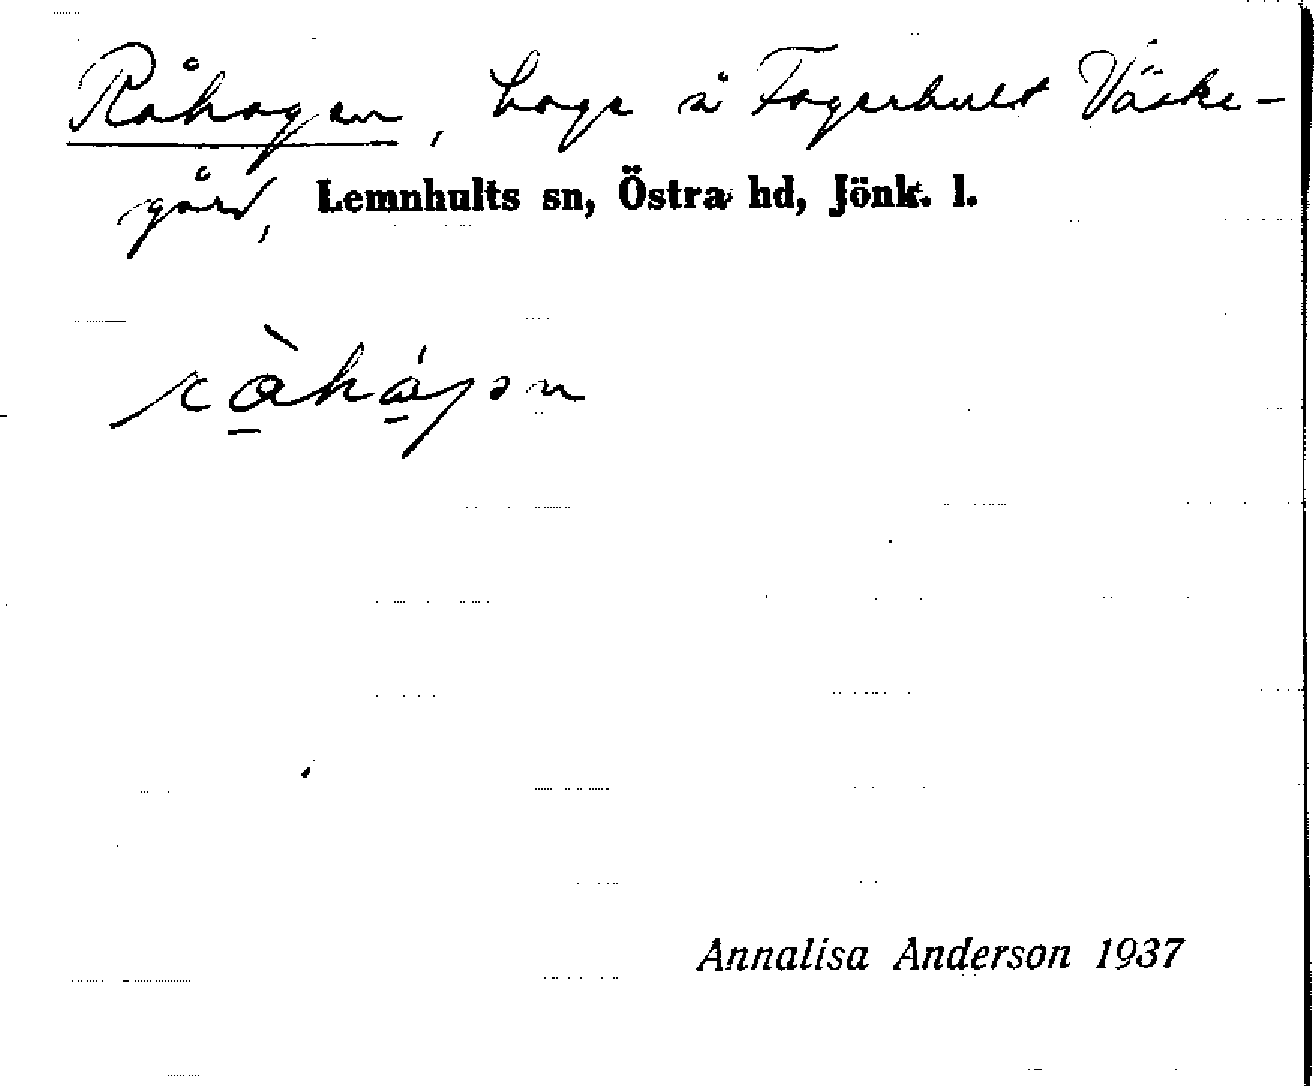 Råhagen, hage å Fagerhult Väske-
gård, Lemnhults sn, Östra hd, Jönk. l.
Annalisa Anderson 1937